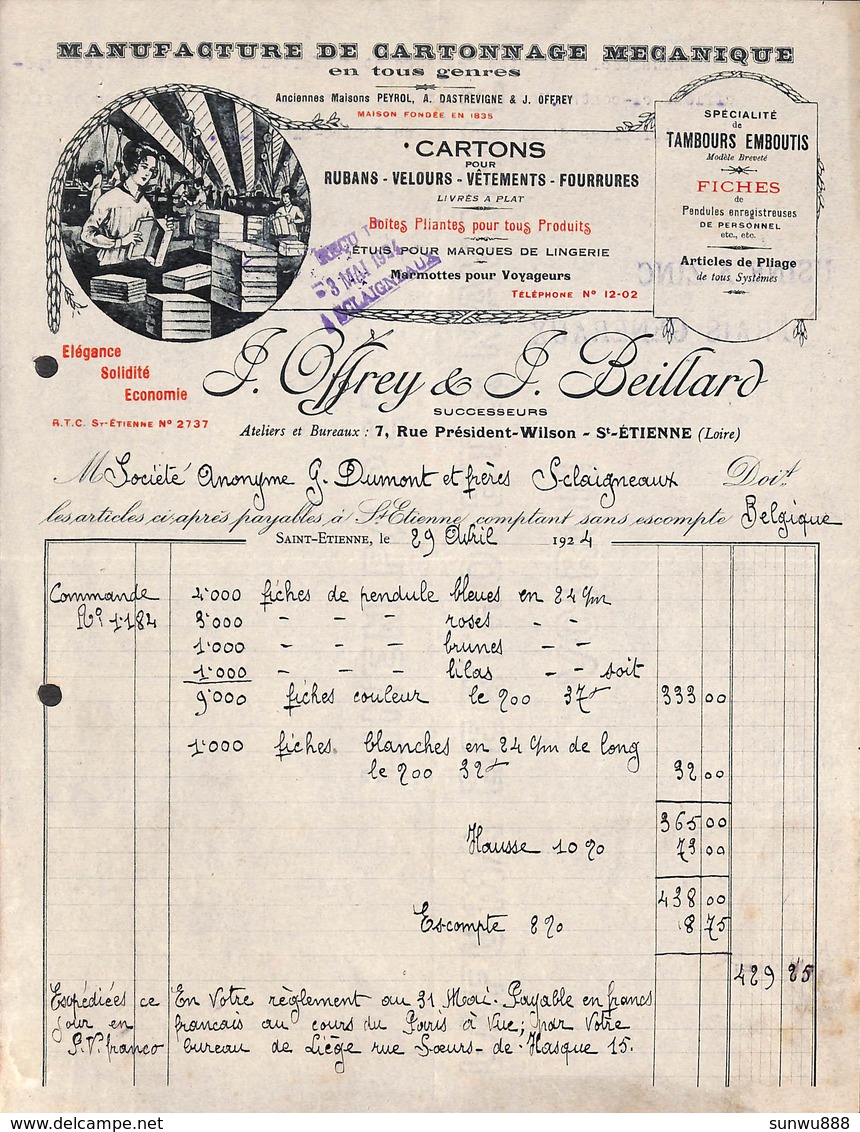 MANUFACTURE DE CARTONNAGE MECANIQUE
en tous genres
Anciennes Maisons PEYROL, A. DASTREVIGNE & J. OFFREY
MAISON FONDÉE EN 1835
CARTONS
POUR
RUBANS - VELOURS - VÊTEMENTS - FOURRURES
LIVRÉS A PLAT
Boîtes Pliantes pour tous Produits
ÉTUIS POUR MARQUES DE LINGERIE
Marmottes pour Voyageurs
TÉLÉPHONE Nº 12-02
REÇU
3 MAI 1924
SCLAIGNEAUX
SPÉCIALITÉ
de
TAMBOURS EMBOUTIS
Modèle Breveté
FICHES
de
Pendules enregistreuses
DE PERSONNEL
etc., etc.
Articles de Pliage
de tous Systèmes
Elégance
Solidité
Economie
R.T.C. ST-ÉTIENNE Nº 2737
J. Offrey & J. Beillard
SUCCESSEURS
Ateliers et Bureaux : 7, Rue Président-Wilson - St-ÉTIENNE (Loire)
M Société Anonyme G. Dumont et frères Sclaigneaux Doit
les articles ci-après payables à St-Etienne comptant sans escompte Belgique
SAINT-ETIENNE, le 29 Avril 1924
Commande 4.000 fiches de pendule bleues en 24 c/m
Nº 1.184 3.000 - - - roses - -
1.000 - - - brunes - -
1.000 - - - lilas - - soit
9.000 fiches couleur le 200 37 333 00
1.000 fiches blanches en 24 c/m de long
le 200 32 32 00
365 00
Hausse 10 % 73 00
438 00
Escompte 2 % 8 75
429 25
Expédiées ce En Votre règlement au 31 Mai. Payable en francs
jour en francais au cours du Paris à Vue; par Votre
P.V. franco bureau de Liège rue Sœurs-de-Hasque 15.
delcampe.net
sunwu888